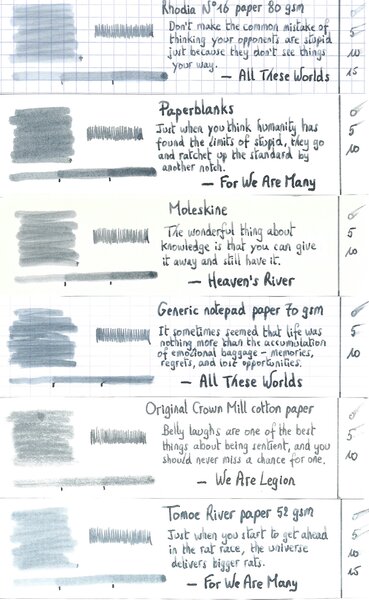 Rhodia N°16 paper 80 gsm
Don't make the common mistake of
thinking your opponents are stupid
just because they don't see things
your way.
— All These Worlds
5
10
15
Paperblanks
Just when you think humanity has
found the limits of stupid, they go
and ratchet up the standard by
another notch.
— For We Are Many
5
10
Moleskine
The wonderful thing about
knowledge is that you can give
it away and still have it.
— Heaven's River
5
10
Generic notepad paper 70 gsm
It sometimes seemed that life was
nothing more than the accumulation
of emotional baggage – memories,
regrets, and lost opportunities.
— All These Worlds
5
10
Original Crown Mill cotton paper
Belly laughs are one of the best
things about being sentient, and you
should never miss a chance for one.
— We Are Legion
5
10
Tomoe River paper 52 gsm
Just when you start to get ahead
in the rat race, the universe
delivers bigger rats.
— For We Are Many
5
10
15